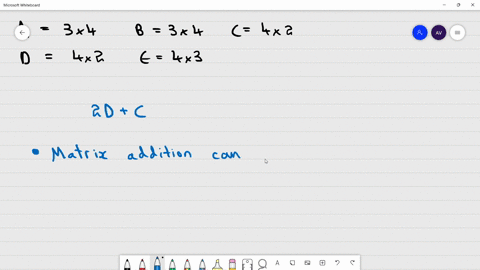 Microsoft Whiteboard
= 3×4 B = 3×4 C = 4×2
D = 4×2 E = 4×3
AV
2D + C
• Matrix addition can